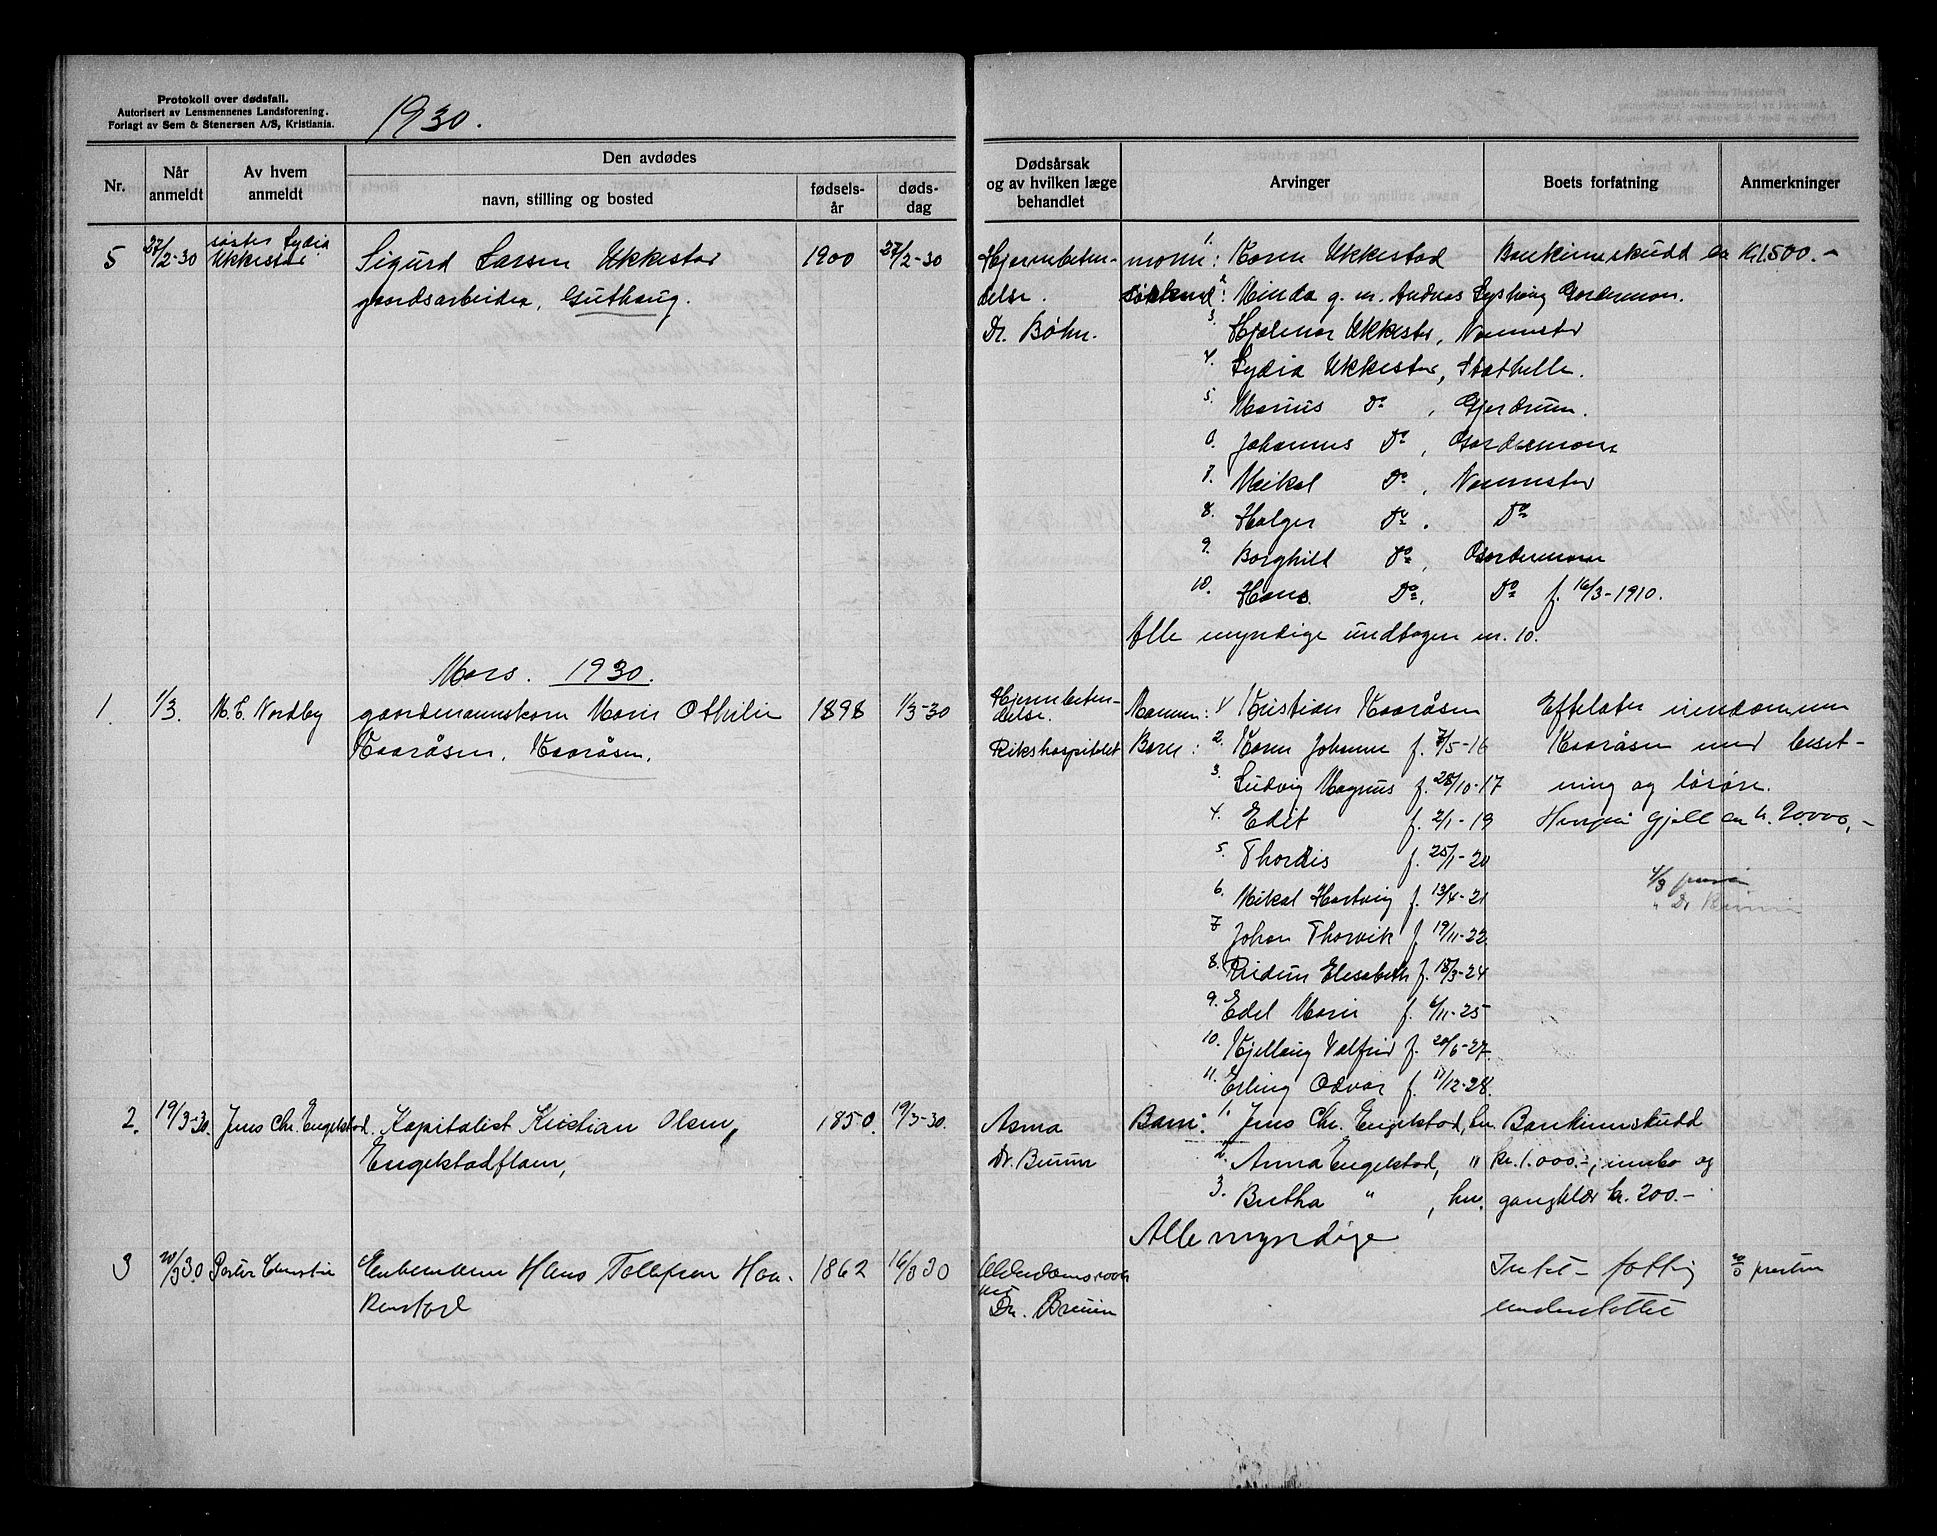 Protokoll over dødsfall.
Autorisert av Lensmennenes Landsforening.
Forlagt av Sem & Stenersen A/S, Kristiania.
1930.
Nr.
Når anmeldt
Av hvem anmeldt
Den avdødes
navn, stilling og bosted
fødsels-år
døds-dag
Dødsårsak og av hvilken læge behandlet
Arvinger
Boets forfatning
Anmerkninger
5 27/2-30 søster Lydia Ukkestad Sigurd Larsen Ukkestad 1900 27/2-30
gaardsarbeider, Guthaug.
Hjernebeten-
delse.
Dr. Bøhn.
1. Karen Ukkestad
2. Minda g. m. Andreas Lyshaug Gardermoen.
3. Hjalmar Ukkestad, Nannestad
4. Lydia Ukkestad, Stathelle.
5. Marius Do, Gjerdrum.
6. Johannes Do, Gardermoen
7. Mikal Do, Nannestad
8. Holger Do. Do
9. Borghild Do, Gardermoen
10. Hans Do, Do f. 16/3-1910.
Alle myndige undtagen nr. 10.
Bankinnskudd ca Kr 1500.-
Mars. 1930.
1. 1/3. M. C. Nordby gaardmannskone Marie Othilie 1898 1/3-30
Kaaråsen, Kaaråsen.
Hjernebeten-
delse.
Rikshospitalet
Mannen: 1 Kristian Kaaråsen
Barn: 2. Karen Johanne f. 7/5-16
3. Ludvig Magnus f. 28/10-17
4. Edit f. 2/1-19
5. Thordis f. 25/1-20
6. Mikal Hartvig f. 13/4-21
7 Johan Thorvik f 19/11-22
8. Reidun Elisabeth f. 18/3-24
9. Edel Marie f. 6/11-25
10. Kjellaug Valfrid f. 20/6-27.
11. Erling Odvar f. 11/12-28.
Efterlater eiendommen
Kaaråsen med beset-
ning og løsøre.
Herpå gjell ca kr. 20.000,-
4/3
" Dr
2. 19/3-30. Jens Chr. Engelstad. Kapitalist Kristian Olsen, 1850. 19/3-30.
Engelstadflaen,
Asma
Dr. Bruun
Barn: 1. Jens Chr. Engelstad, her.
2. Anna Engelstad, "
3. Bertha " , her.
Alle myndige
Bankinnskudd
kr. 1.000.-, innbo og
gangklær kr. 200.-
3 20/3 30 Pastor Christie Enkemann Hans Tollefsen Haa- 1862 16/3 30
Alderdomssvak
het
Dr. Bruun
Intet - fattig
understøttet
presten